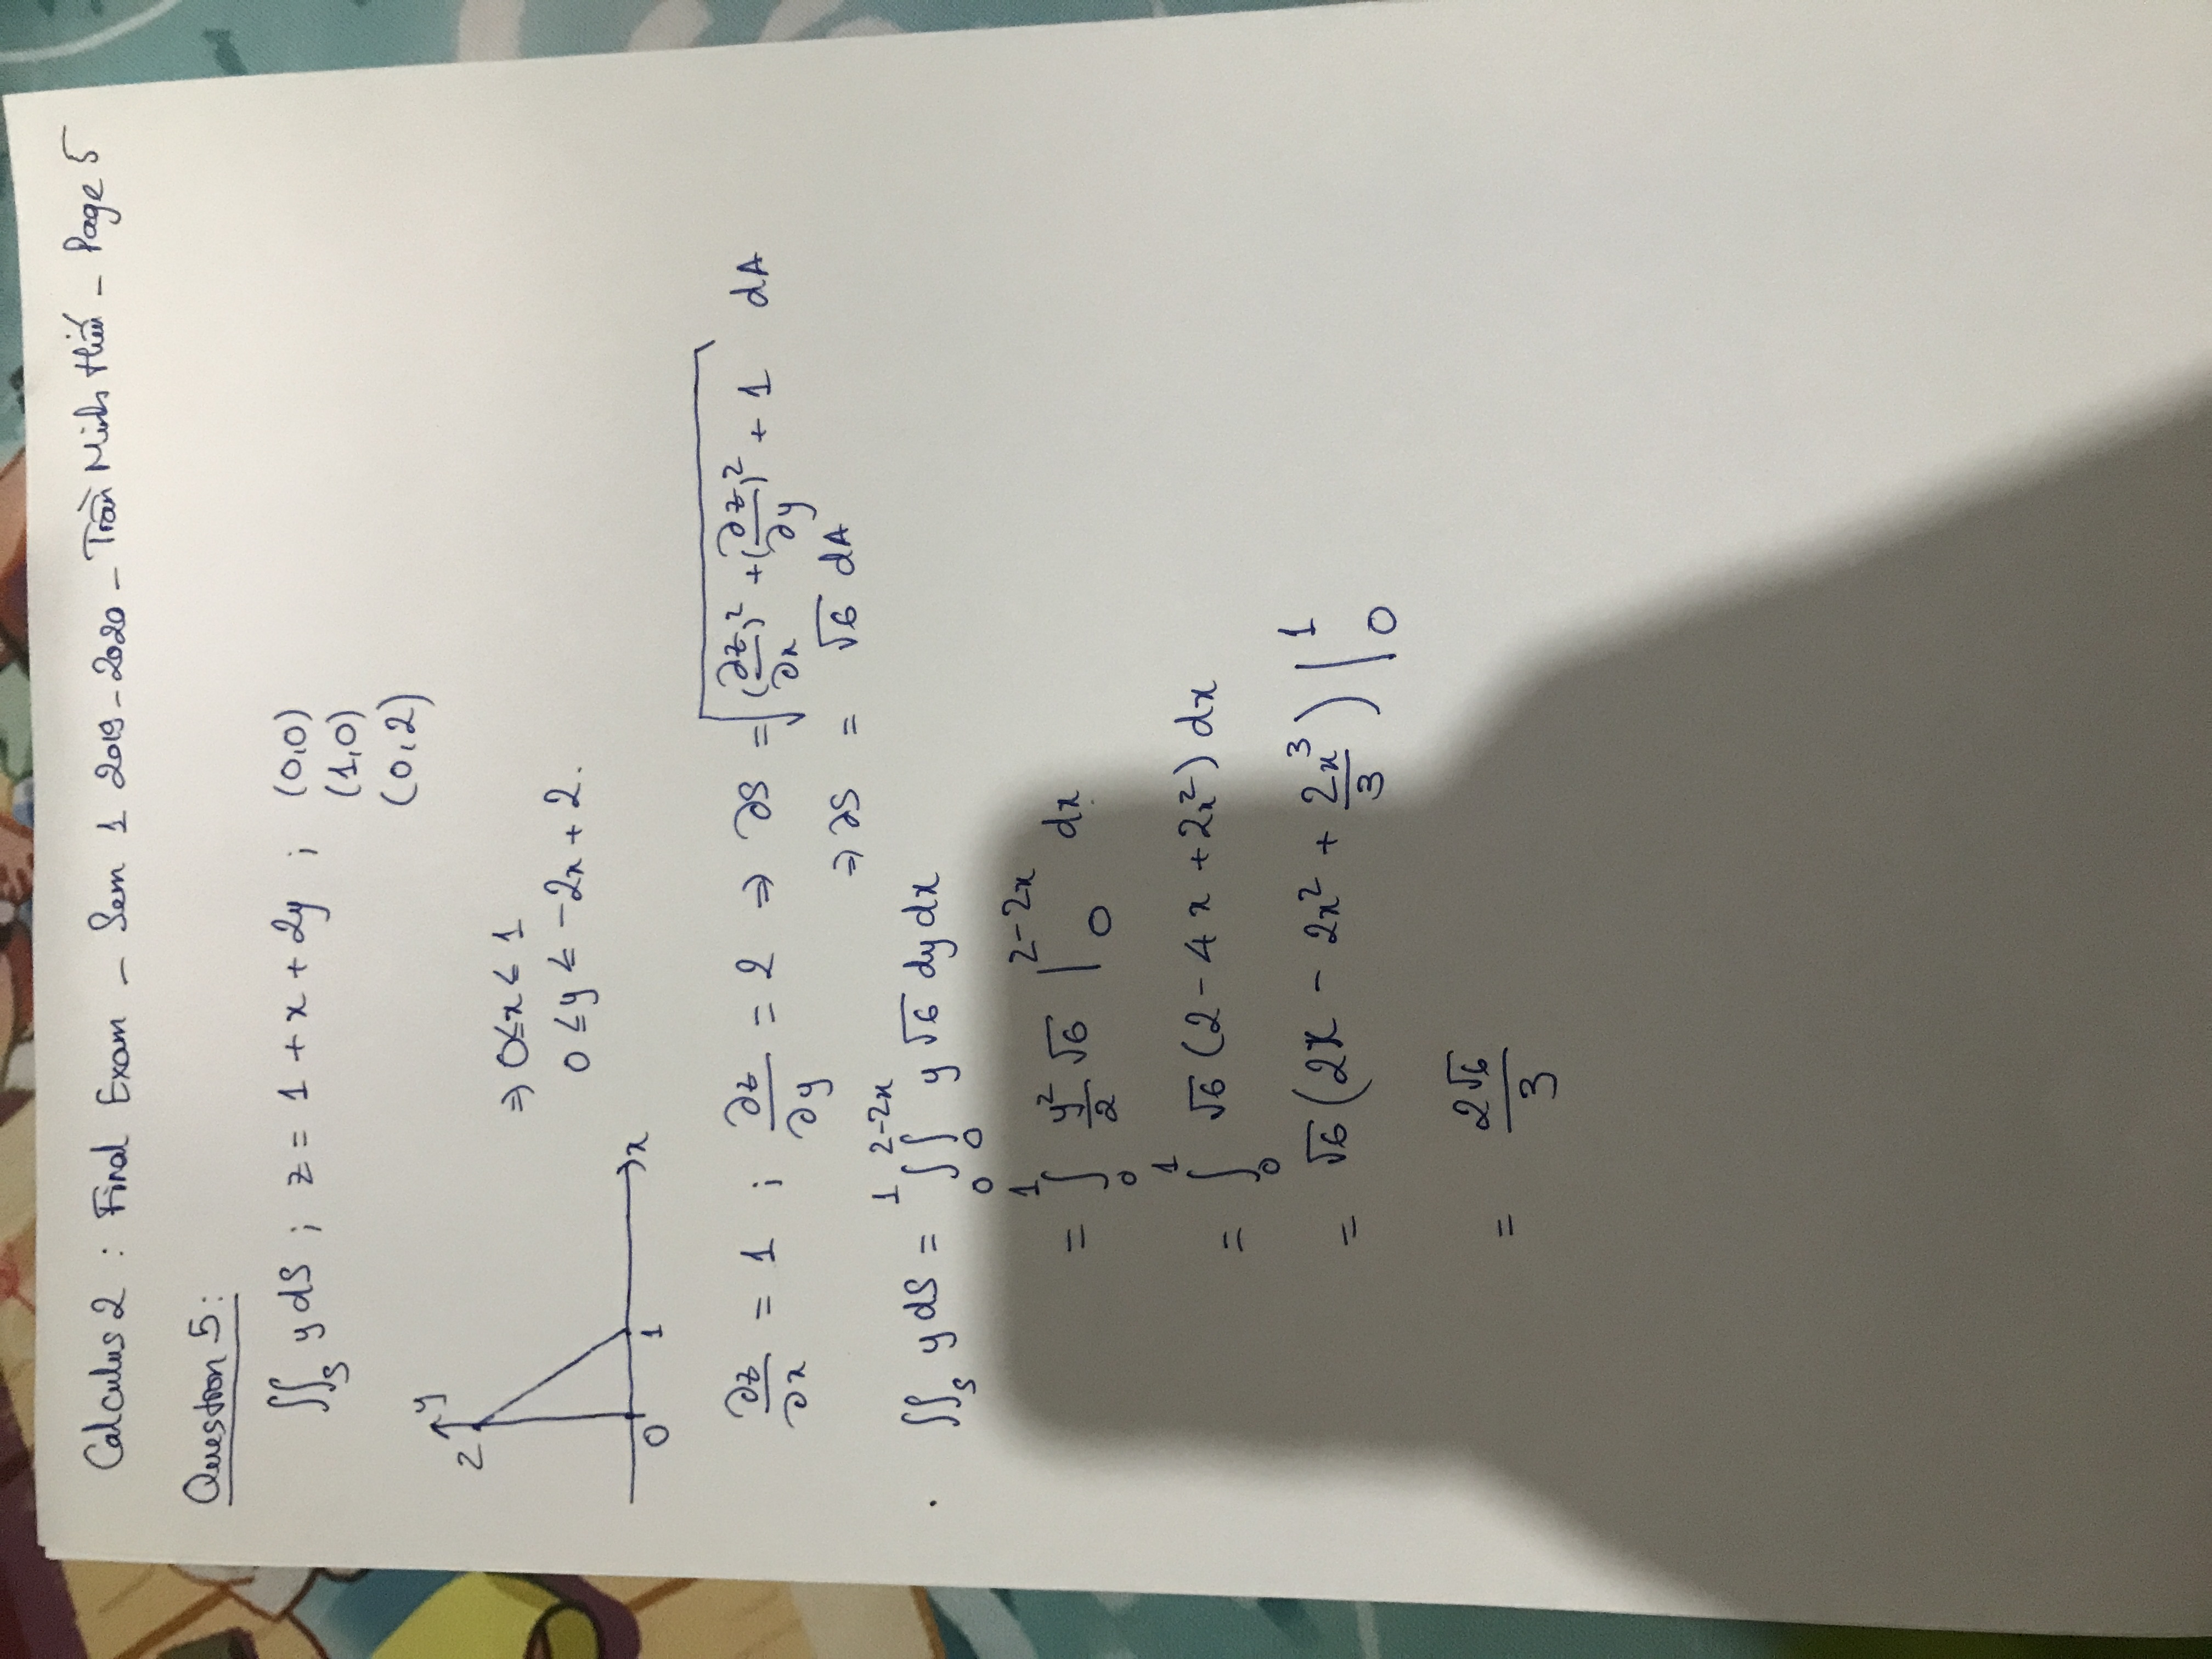 Calculus 2 : Final Exam – Sem 1 2019-2020 – Trần Minh Hiếu – Page 5
Question 5:
∬_S y dS ; z = 1 + x + 2y ; (0,0)
(1,0)
(0,2)
y
2
0 1 x
⇒ 0 ≤ x ≤ 1
0 ≤ y ≤ -2x + 2.
∂z/∂x = 1 ; ∂z/∂y = 2 ⇒ ∂S = √((∂z/∂x)² + (∂z/∂y)² + 1) dA
⇒ ∂S = √6 dA
∬_S y dS = ∫₀¹ ∫₀^(2-2x) y √6 dy dx
= ∫₀¹ y²/2 √6 |₀^(2-2x) dx
= ∫₀¹ √6 (2 - 4x + 2x²) dx
= √6 (2x - 2x² + 2x³/3) |₀¹
= 2√6/3